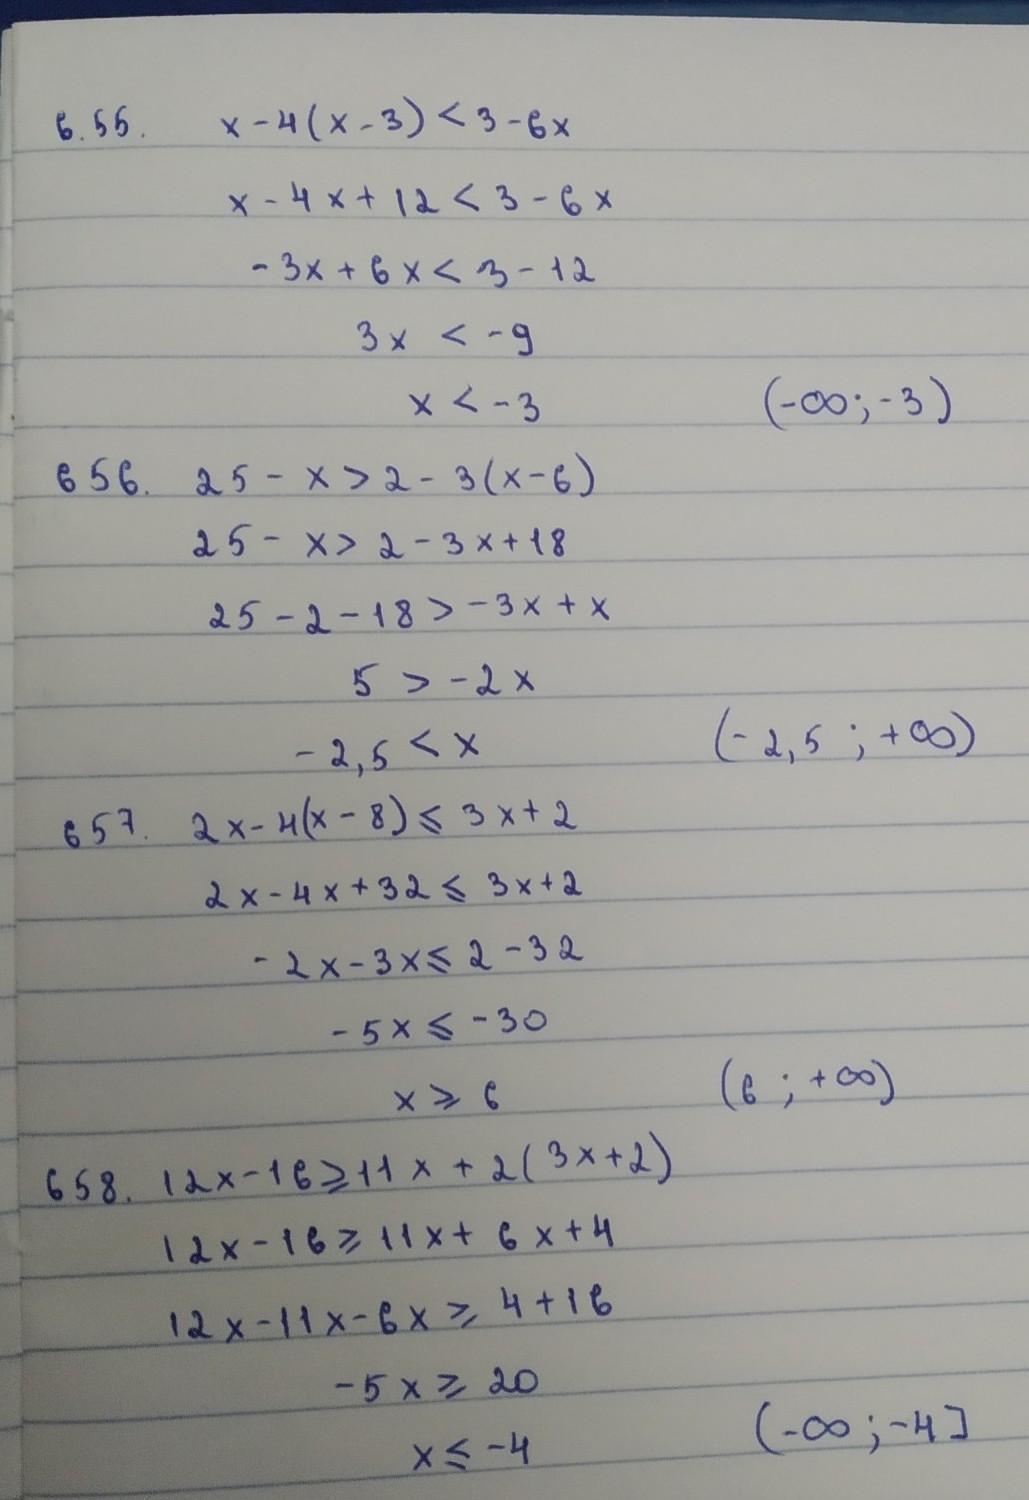 6.55. x-4(x-3)<3-6x
x-4x+12<3-6x
-3x+6x<3-12
3x < -9
x < -3 (-∞;-3)
656. 25-x>2-3(x-6)
25-x>2-3x+18
25-2-18>-3x+x
5 > -2x
-2,5 < x (-2,5 ; +∞)
657. 2x-4(x-8)⩽3x+2
2x-4x+32⩽3x+2
-2x-3x⩽2-32
-5x⩽-30
x⩾6 (6 ; +∞)
658. 12x-16⩾11x+2(3x+2)
12x-16⩾11x+6x+4
12x-11x-6x⩾4+16
-5x⩾20
x⩽-4 (-∞;-4]